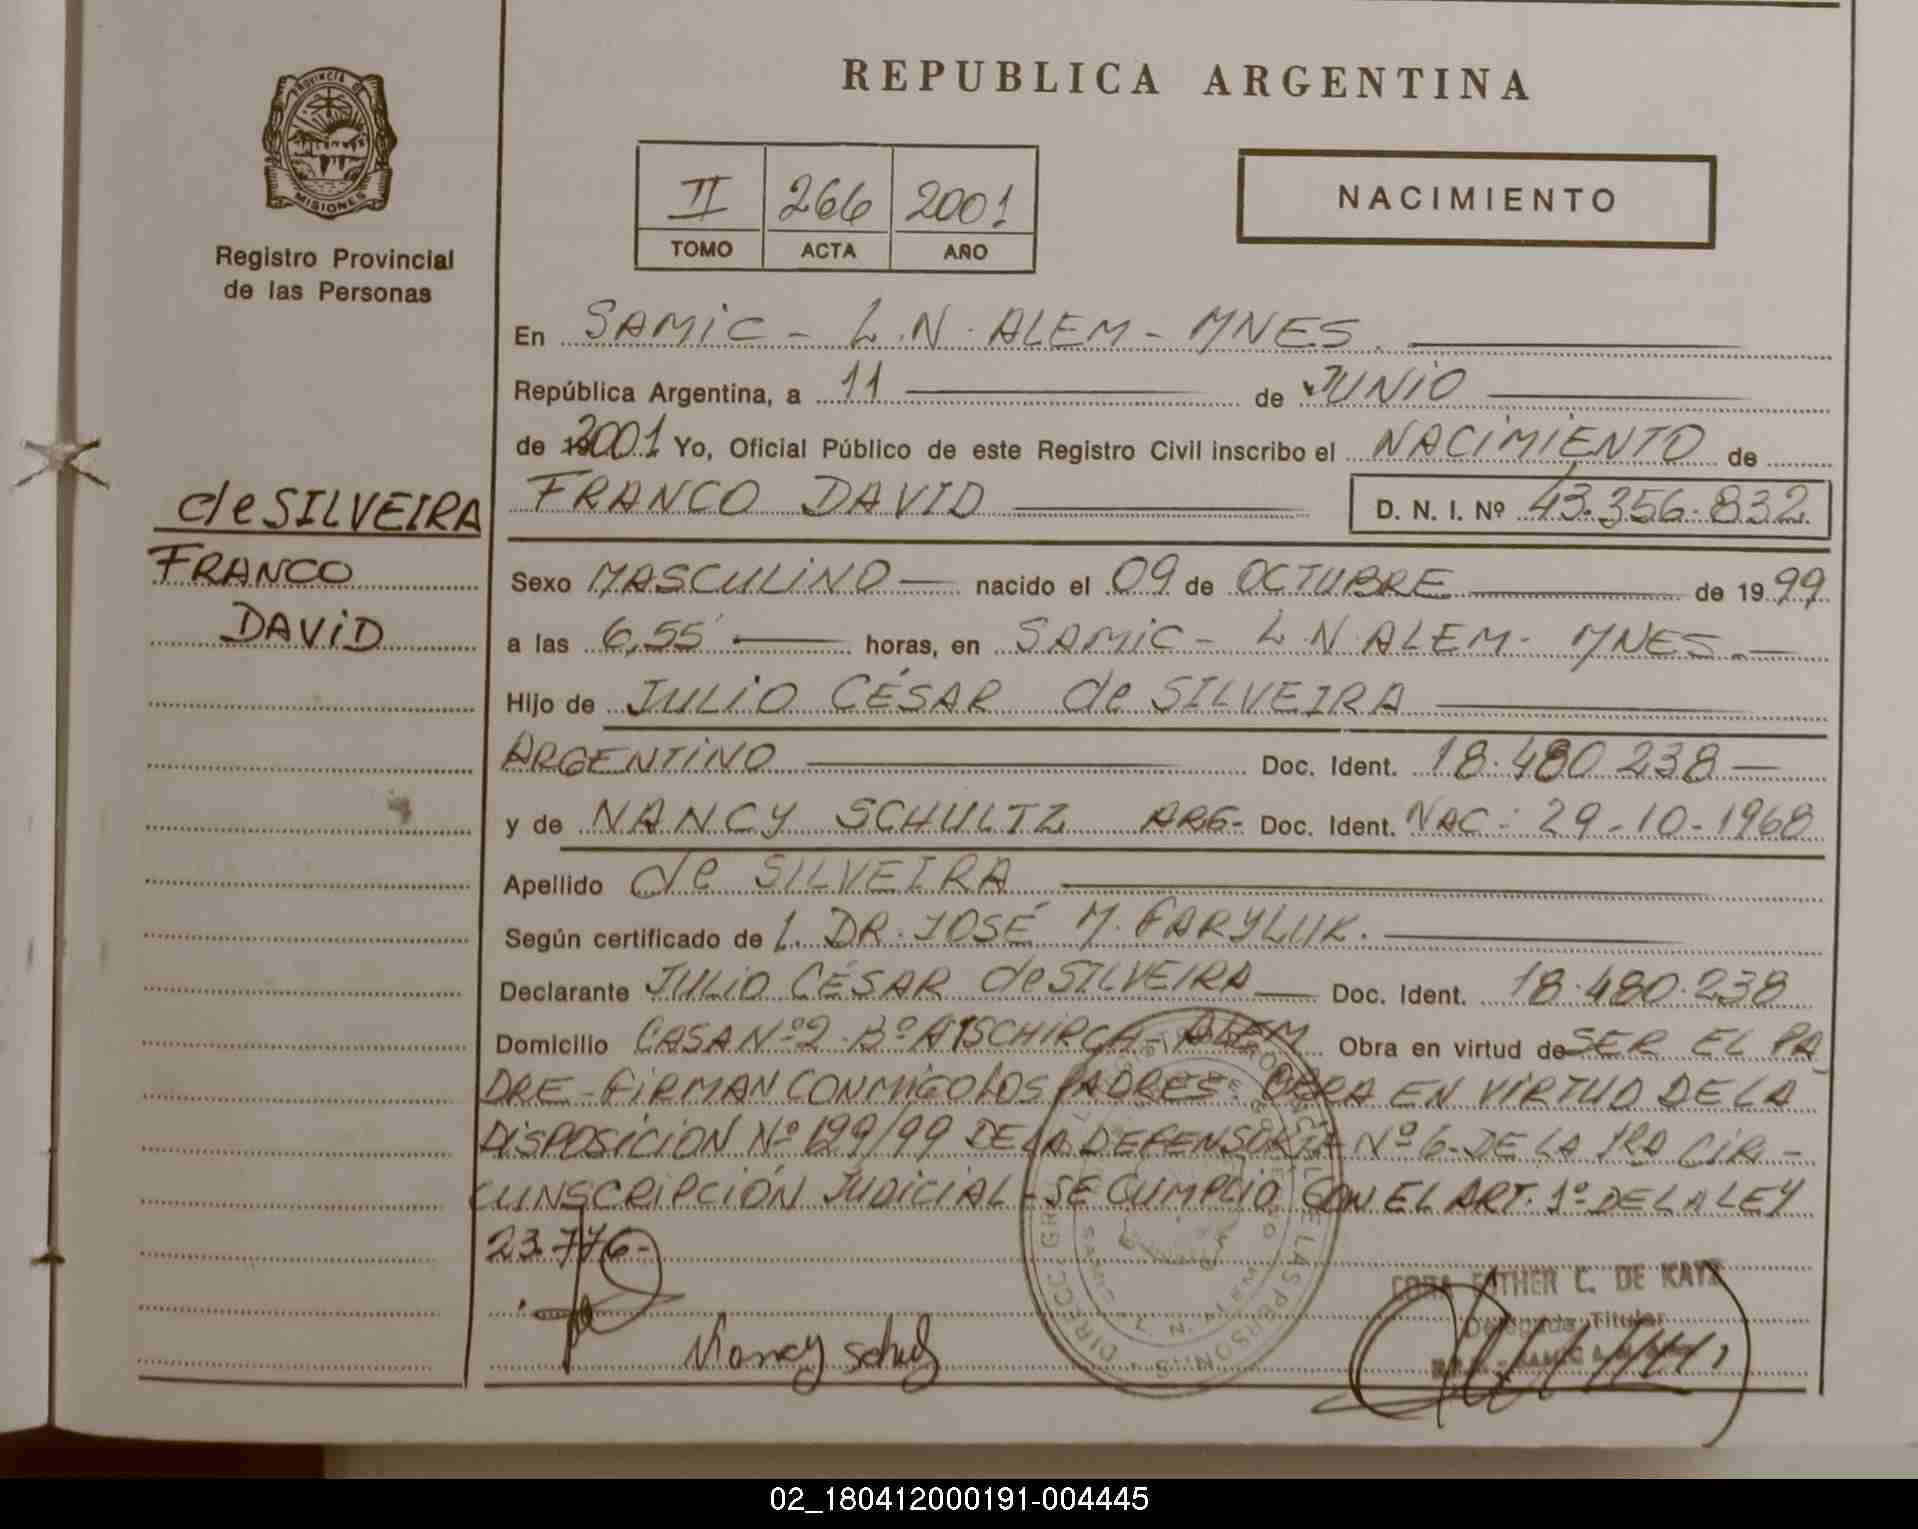 PROVINCIA DE
MISIONES
Registro Provincial
de las Personas
REPUBLICA ARGENTINA
II 266 2001
TOMO ACTA AÑO
NACIMIENTO
En SAMIC - L.N. ALEM - MNES.
República Argentina, a 11 de JUNIO
de 2001 Yo, Oficial Público de este Registro Civil inscribo el NACIMIENTO de
FRANCO DAVID D. N. I. Nº 43.356.832
de SILVEIRA
FRANCO
DAVID
Sexo MASCULINO nacido el 09 de OCTUBRE de 1999
a las 6,55 horas, en SAMIC - L.N. ALEM - MNES.
Hijo de JULIO CÉSAR de SILVEIRA
ARGENTINO Doc. Ident. 18.480.238
y de NANCY SCHULTZ ARG- Doc. Ident. NAC: 29-10-1968
Apellido de SILVEIRA
Según certificado de l. DR. JOSÉ M. FARYLUK.
Declarante JULIO CÉSAR de SILVEIRA Doc. Ident. 18.480.238
Domicilio CASA Nº 2 - Bº ALEM Obra en virtud de SER EL PA
DRE - FIRMAN CONMIGO LOS PADRES - OBRA EN VIRTUD DE LA
DISPOSICIÓN Nº 129/99 DE LA DEFENSORIA Nº 6 - DE LA 1RA CIR-
CUNSCRIPCIÓN JUDICIAL - SE CUMPLIÓ CON EL ART. 1º DE LA LEY
23.776-
ESTHER C. DE KATZ
Delegada Titular
Nancy Schulz
02_180412000191-004445